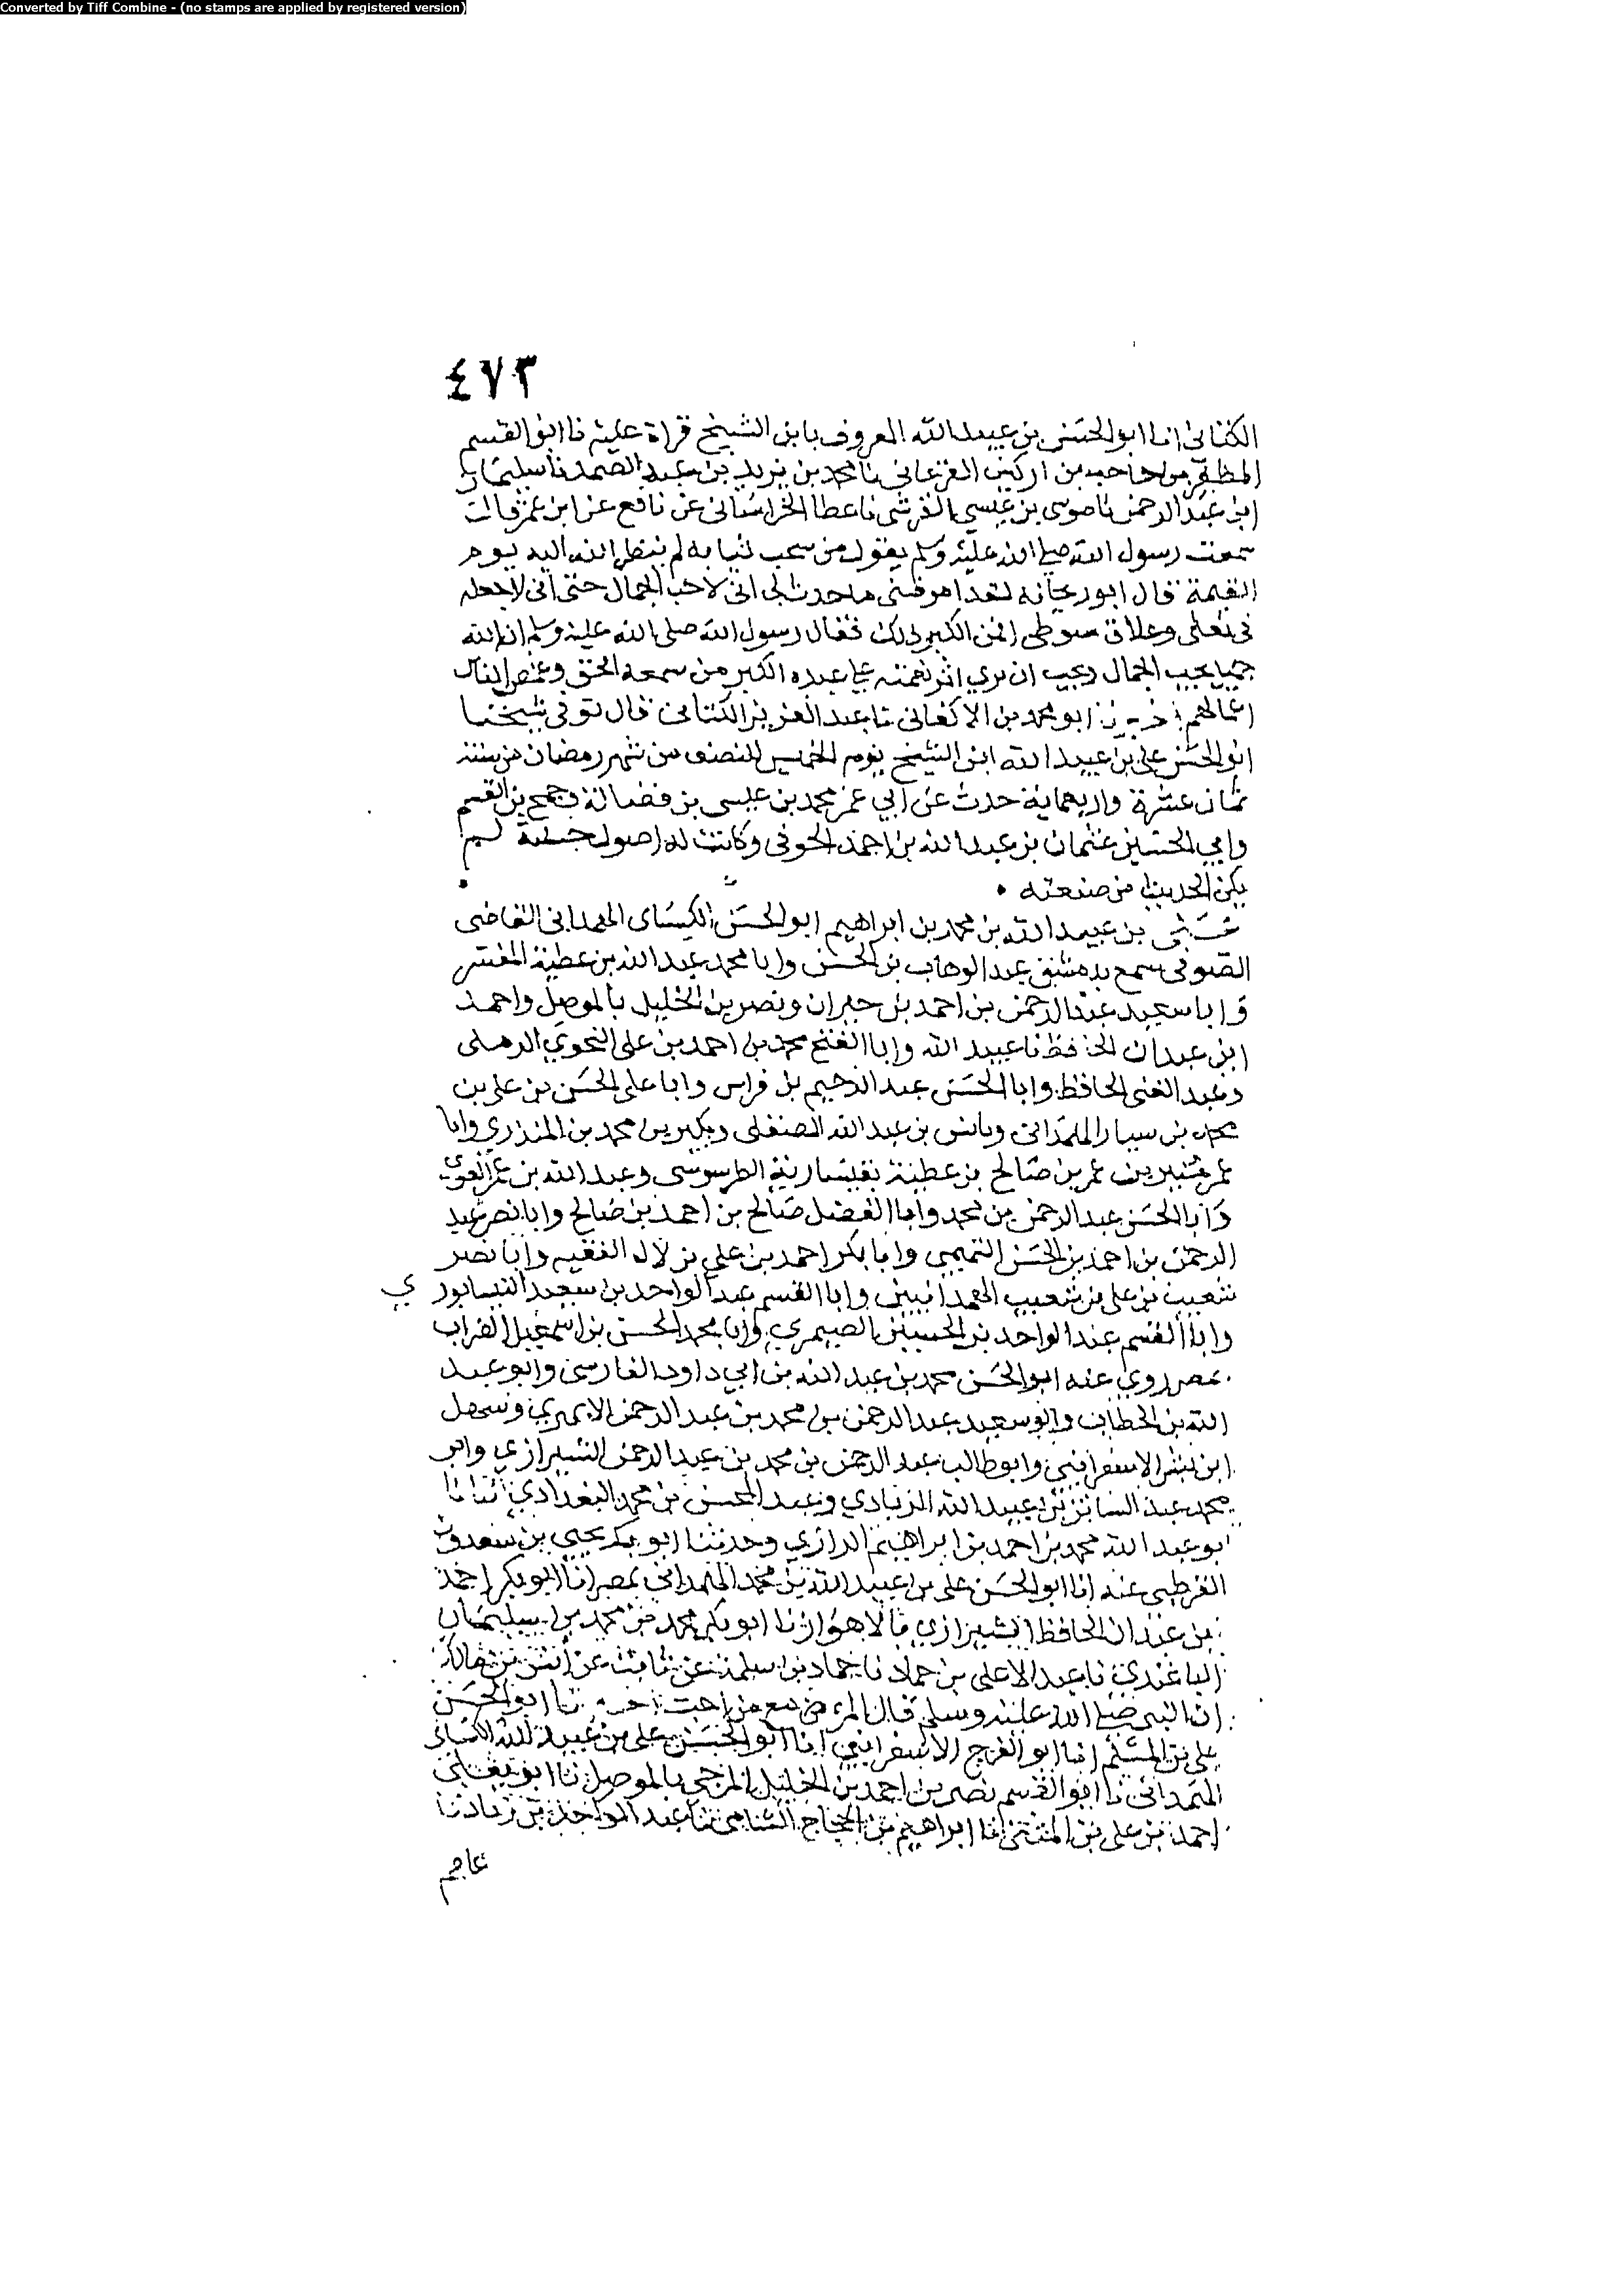 Converted by Tiff Combine - (no stamps are applied by registered version)
٤٧٣
الكتانى انا ابو الحسن بن عبيد الله المعروف بابن الشيخ قراة عليه نا ابو القسم
المظفر بن حاجب بن اركين الفرغانى نا محمد بن يزيد بن عبد الصمد نا سليمان
ابن عبد الرحمن نا موسى بن عيسى القرشى نا عطا الخراسانى عن نافع عن ابن عمر قال
سمعت رسول الله صلى الله عليه وسلم يقول من سحب ثيابه لم ينظر الله اليه يوم
القيمة قال ابو ريحانه لقد امرضنى ما حدثنا انى لاحب الجمال حتى انى لاجعله
فى نعلى وعلاق سوطى افمن الكبر ذلك فقال رسول الله صلى الله عليه وسلم ان الله
جميل يحب الجمال ويحب ان يرى اثر نعمته على عبده الكبر من سفه الحق وغمص الناس
اعمالهم ابو محمد بن الاكفانى نا عبد العزيز الكتانى قال توفى شيخنا
ابو الحسن على بن عبيد الله ابن الشيخ يوم الخميس للنصف من شهر رمضان من سنة
ثمان عشرة واربعماية حدث عن ابي عمر محمد بن عيسى بن فضالة وجمح بن القسم
وابي الحسين عثمان بن عبد الله بن احمد الخوفى وكانت له اصول حسنة لم
يكن الحديث من صنعته
على بن عبيد الله بن محمد بن ابراهيم ابو الحسن الكيساى الهمدانى القاضى
الصوفى سمع بدمشق عبد الوهاب بن الحسن وابا محمد عبد الله بن عطية المفسر
وابا سعيد عبد الرحمن بن احمد بن جيران ونصر بن الخليل بالموصل واحمد
ابن عبدان الحافظ نا عبيد الله وابا الفتح محمد بن احمد بن على النحوي الرملى
وعبد الغنى الحافظ وابا الحسن عبد الرحيم بن فراس وابا على الحسن بن على بن
محمد بن سيار الهمدانى ويانس بن عبد الله الصقلى وبكير بن محمد بن المنذري وابا
عمر عمر بن صالح بن عطية بقيسارية الطرسوسى وعبد الله بن عمر
وابا الحسن عبد الرحمن بن محمد وابا الفضل صالح بن احمد بن صالح وابا نصر عبد
الرحمن بن احمد بن الحسن التميمي وابا بكر احمد بن على بن لال الفقيه وابا نصر
شعيب بن على بن شعيب الهمدانيين وابا القسم عبد الواحد بن سعيد النيسابوري
وابا القسم عبد الواحد بن الحسين الصيمري وابا محمد الحسن بن اسمعيل الضراب
بمصر روي عنه ابو الحسن محمد بن عبد الله بن ابي داود الفارسى وابو عبد
الله بن الحطاب وابو سعيد عبد الرحمن بن محمد بن عبد الرحمن الابهري وسهل
ابن بشر الاسفراينى وابو طالب عبد الرحمن بن محمد بن عبد الرحمن الشيرازي وابو
محمد عبد الساتر بن عبيد الله الزيادي وعبد المحسن بن محمد البغدادي انبانا
ابو عبد الله محمد بن احمد بن ابراهيم الرازي وحدثنا ابو بكر يحيي بن سعدون
القرطبى عنه انا ابو الحسن على بن عبيد الله بن محمد الهمدانى بمصر انا ابو بكر احمد
بن عبدان الحافظ الشيرازي بالاهواز نا ابو بكر محمد بن محمد بن سليمان
الباغندي نا عبد الاعلى بن حماد نا حماد بن سلمة عن ثابت عن أنس بن مالك
ان النبى صلى الله عليه وسلم قال المرء مع من احب ابو الحسن
على بن المسلم انا ابو الفرج الاسفراينى انا ابو الحسن على بن عبيد الله الكسائى
الهمدانى نا ابو القسم نصر بن احمد بن الخليل المرجى بالموصل نا ابو يعلى
احمد بن على بن المثنى انا ابراهيم بن الحجاج الشامى نا عبد الواحد بن زياد نا
عاصم